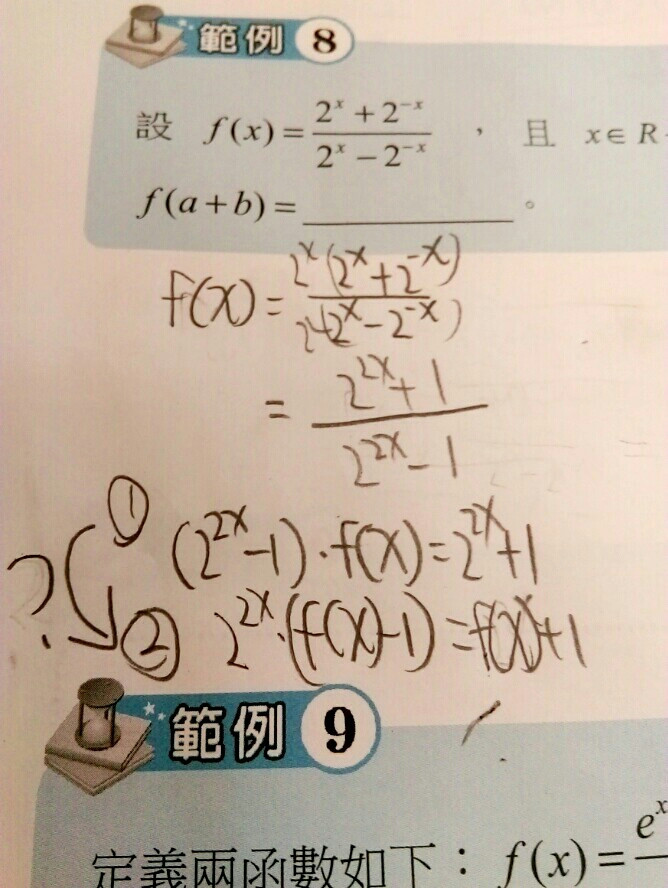 範例 8
設 f(x) = \frac{2^x + 2^{-x}}{2^x - 2^{-x}} , 且 x ∈ R
f(a+b) = ________ 。
f(x) = \frac{2^x(2^x + 2^{-x})}{2^x(2^x - 2^{-x})}
= \frac{2^{2x} + 1}{2^{2x} - 1}
① (2^{2x} - 1) · f(x) = 2^{2x} + 1
? ② 2^{2x} · (f(x) - 1) = f(x) + 1
範例 9
定義兩函數如下：f(x) = e^x